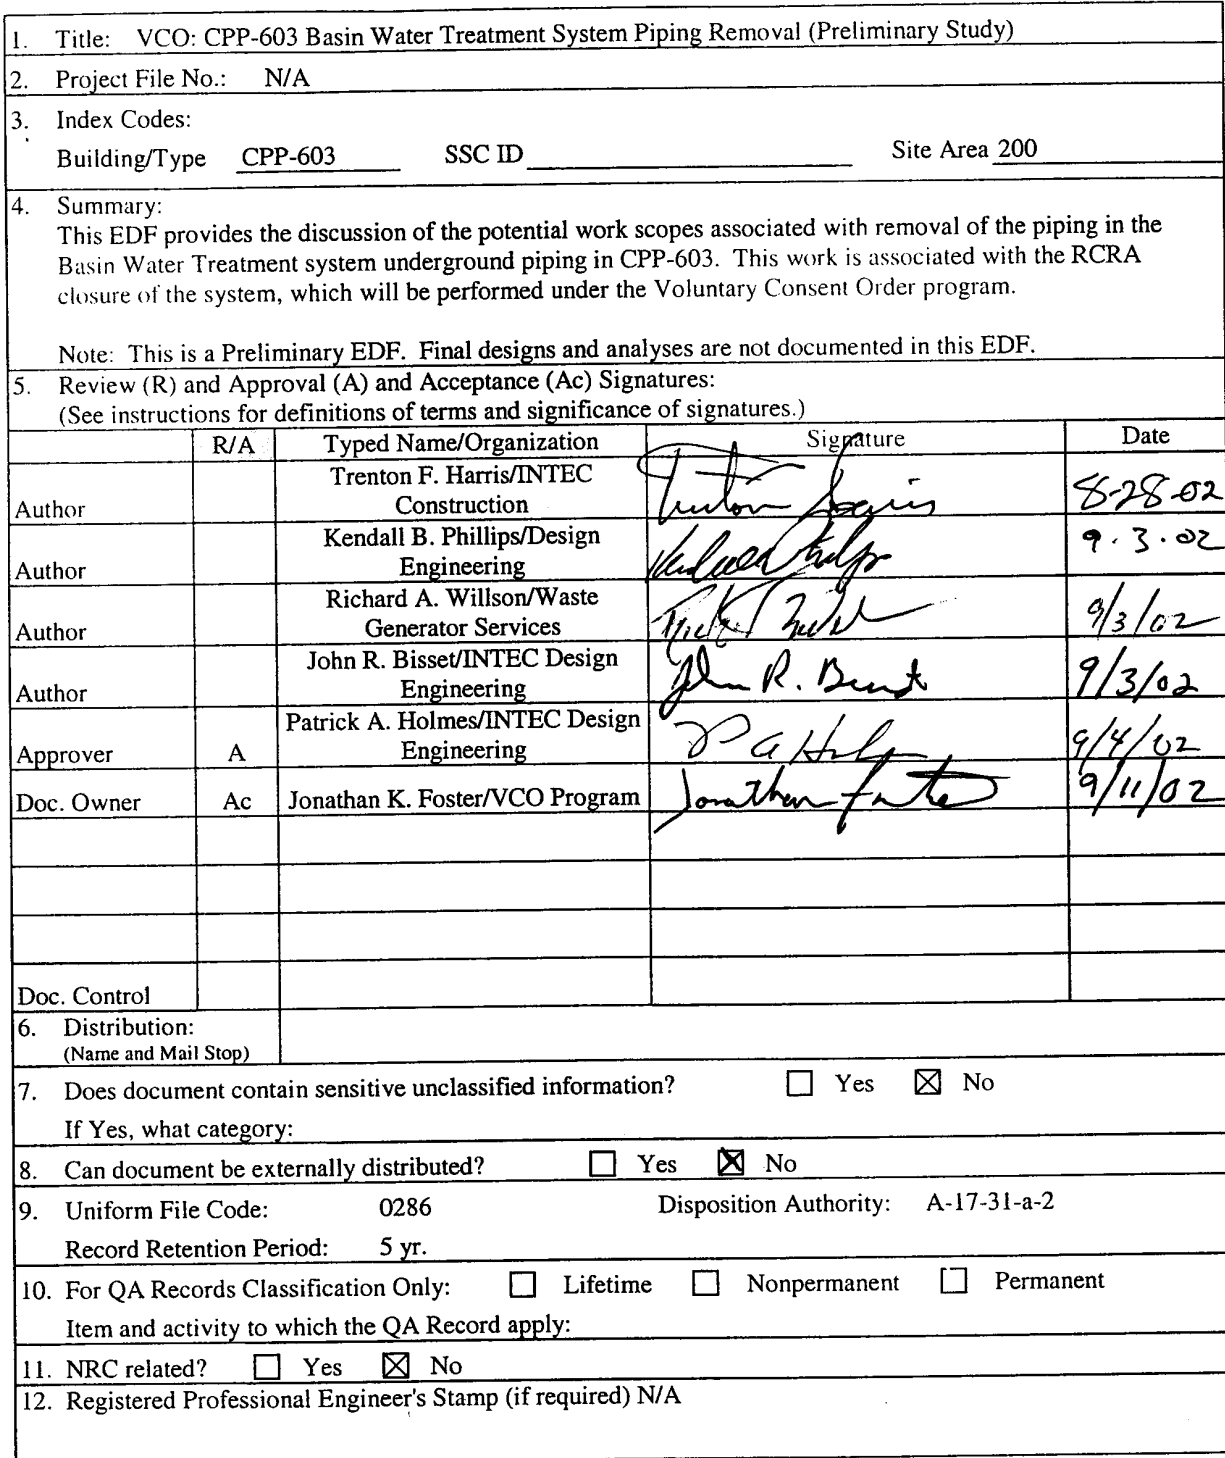 1. Title: VCO: CPP-603 Basin Water Treatment System Piping Removal (Preliminary Study)
2. Project File No.: N/A
3. Index Codes:
Building/Type CPP-603 SSC ID Site Area 200
4. Summary:
This EDF provides the discussion of the potential work scopes associated with removal of the piping in the
Basin Water Treatment system underground piping in CPP-603. This work is associated with the RCRA
closure of the system, which will be performed under the Voluntary Consent Order program.
Note: This is a Preliminary EDF. Final designs and analyses are not documented in this EDF.
5. Review (R) and Approval (A) and Acceptance (Ac) Signatures:
(See instructions for definitions of terms and significance of signatures.)
R/A Typed Name/Organization Signature Date
Author Trenton F. Harris/INTEC Construction Trenton Harris 8-28-02
Author Kendall B. Phillips/Design Engineering 9.3.02
Author Richard A. Willson/Waste Generator Services 9/3/02
Author John R. Bisset/INTEC Design Engineering John R. Bisset 9/3/02
Approver A Patrick A. Holmes/INTEC Design Engineering 9/4/02
Doc. Owner Ac Jonathan K. Foster/VCO Program Jonathan Foster 9/11/02
Doc. Control
6. Distribution:
(Name and Mail Stop)
7. Does document contain sensitive unclassified information? ☐ Yes ☒ No
If Yes, what category:
8. Can document be externally distributed? ☐ Yes ☒ No
9. Uniform File Code: 0286 Disposition Authority: A-17-31-a-2
Record Retention Period: 5 yr.
10. For QA Records Classification Only: ☐ Lifetime ☐ Nonpermanent ☐ Permanent
Item and activity to which the QA Record apply:
11. NRC related? ☐ Yes ☒ No
12. Registered Professional Engineer's Stamp (if required) N/A